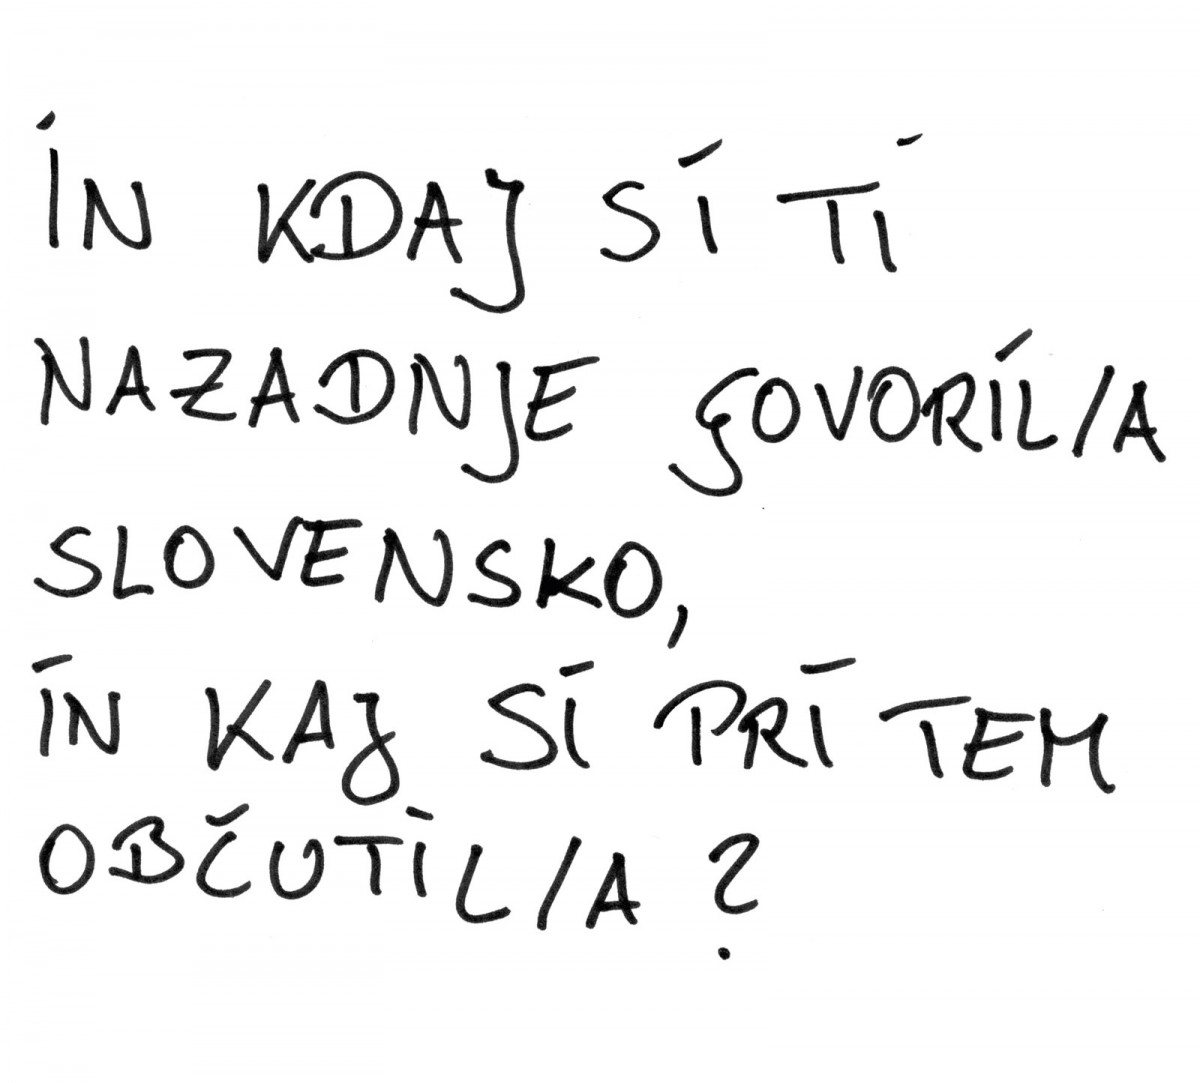 IN KDAJ SI TI
NAZADNJE GOVORIL/A
SLOVENSKO,
IN KAJ SI PRI TEM
OBČUTIL/A?